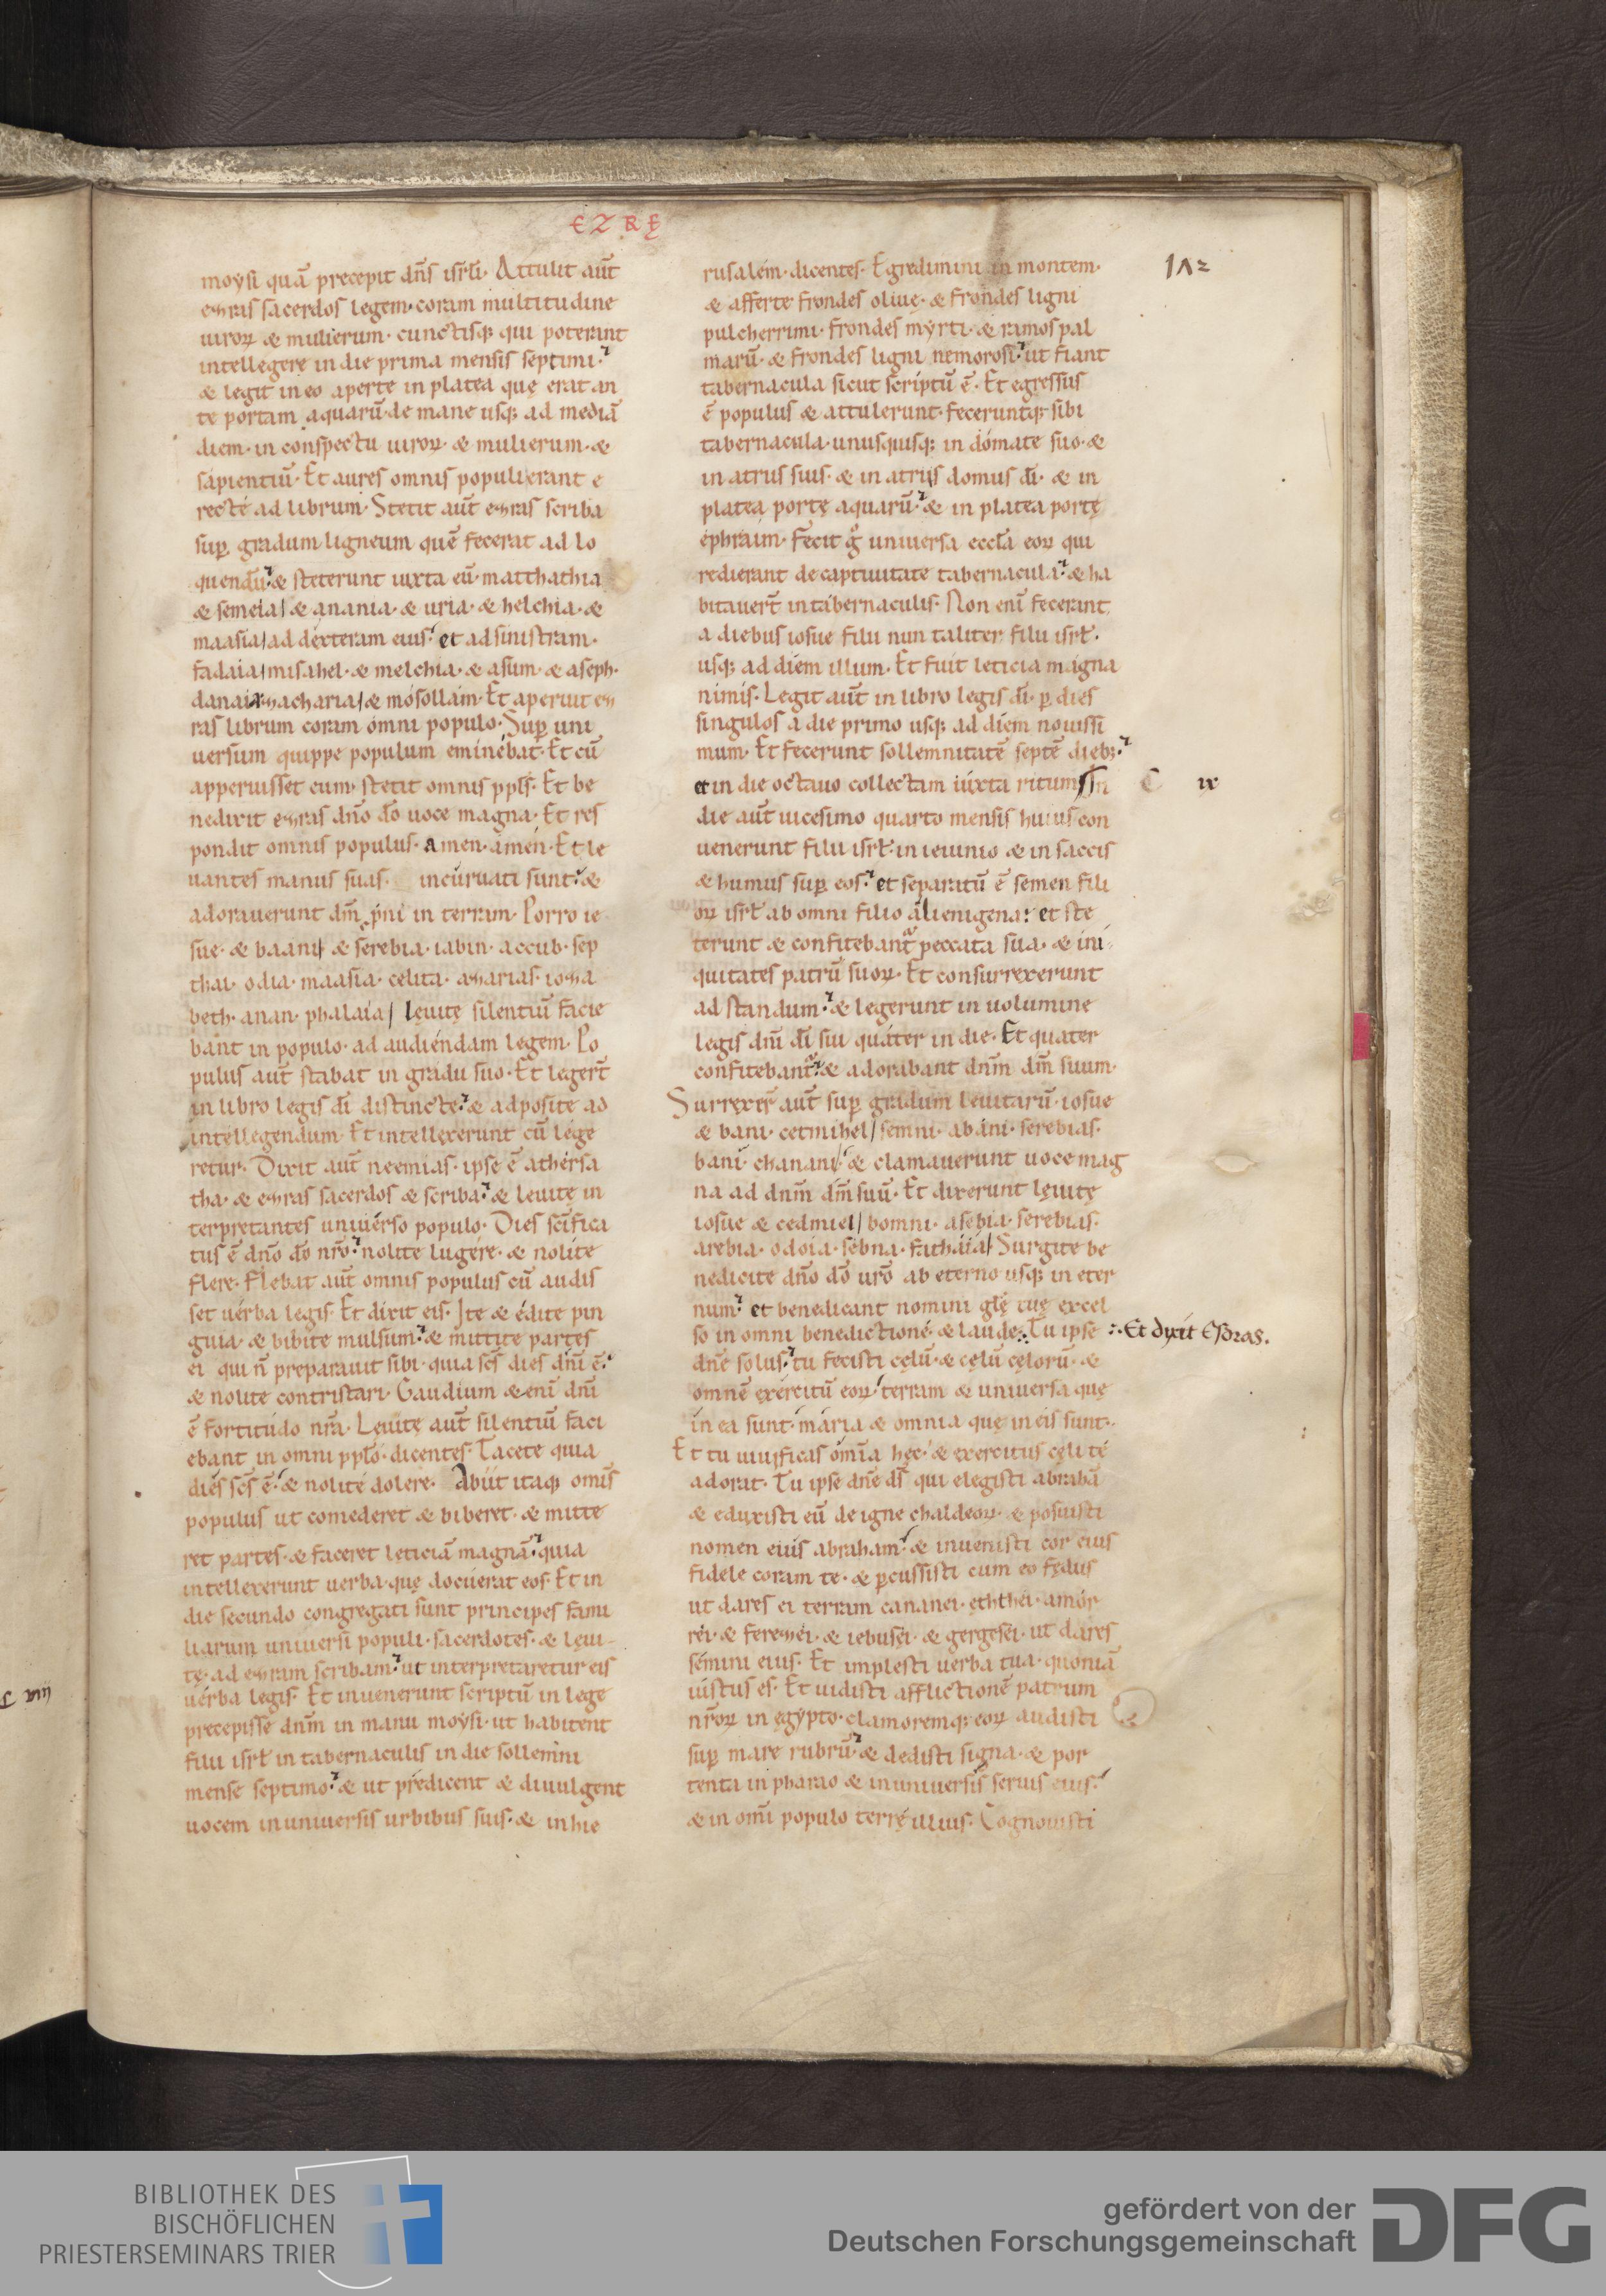 EZRĘ
182
moẏsi quā precepit dn̄s isrl̄i. Attulit aūt
ezras sacerdos legem. coram multitudine
uiroꝝ & mulierum. cunctisq; qui poterant
intellegere in die prima mensis septimi.
& legit in eo aperte in platea quę erat an
te portam aquarū. de mane usq; ad mediā
diem. in conspectu uiroꝝ. & mulierum. &
sapientiū. Et aures omnis populi erant e
recte ad librum. Stetit aūt ezras scriba
suꝑ gradum ligneum quē fecerat ad lo
quendū. & steterunt iuxta eū. matthathia
& semeia/ & anania. & uria. & helchia. &
maasia/ ad dexteram eius. et ad sinistram.
fadaia/ misahel. & melchia. & asum. & aseph.
danaix zacharia/ & mosollam. Et aperuit ez
ras librum coram omni populo. Suꝑ uni
uersum quippe populum eminebat. Et cū
apperuisset eum. stetit omnis ppl̄s. Et be
nedixit ezras dn̄o dō uoce magna. Et res
pondit omnis populus. Amen. amen. Et le
uantes manus suas. incuruati sunt. &
adorauerunt dm̄ pni in terram. Porro ie
sue. & baani & serebia. iabin. accub. sep
thai. odia. maasia. celita. azarias. ioza
beth. anan. phalaia/ leuitę silentiū facie
bant in populo. ad audiendam legem. Po
pulus aūt stabat in gradu suo. Et leger̄t
in libro legis dī distincte. & adposite ad
intellegendum. Et intellexerunt cū lege
retur. Dixit aūt neemias. ipse ē athersa
tha. & ezras sacerdos & scriba. & leuitę in
terpretantes uniuerso populo. Dies scīfica
tus ē dn̄o dō nr̄o. nolite lugere. & nolite
flere. Flebat aūt omnis populus cū audis
set uerba legis. Et dixit eis. Ite & edite pin
guia. & bibite mulsum. & mittite partes
ei qui n̄ preparauit sibi. quia scs̄ dies dn̄i ē.
& nolite contristari. Gaudium & enī dn̄i
ē fortitudo nr̄a. Leuitę aūt silentiū faci
ebant in omni pplō. dicentes. Tacete quia
dies scs̄ ē. & nolite dolere. Abiit itaq; omīs
populus ut comederet & biberet. & mitte
ret partes. & faceret leticiā magnā. quia
intellexerunt uerba. quę docuerat eos. Et in
die secundo congregati sunt principes fami
liarum uniuersi populi. sacerdotes. & lęui-
tę. ad ezram scribam. ut interpretaretur eis
uerba legis. Et inuenerunt scriptū in lege
precepisse dnm̄ in manu moẏsi. ut habitent
filii isrl̄ in tabernaculis in die sollemni
mense septimo. & ut predicent & diuulgent
uocem in uniuersis urbibus suis. & in hie
rusalem. dicentes. Egredimini in montem.
& afferte frondes oliuę. & frondes ligni
pulcherrimi. frondes mẏrti. & ramos pal
marū. & frondes ligni nemorosi. ut fiant
tabernacula sicut scriptū ē. Et egressus
ē populus & attulerunt. feceruntq; sibi
tabernacula. unusquisq; in domate suo. &
in atriis suis. & in atriis domus dī. & in
platea portę aquarū. & in platea portę
ephraim. Fecit g̊ uniuersa eccl̄a eoꝝ qui
redierant de captiuitate tabernacula. & ha
bitauer̄t in tabernaculis. Non enī fecerant
a diebus iosue filii nun taliter filii isrl̄.
usq; ad diem illum. Et fuit leticia magna
nimis. Legit aūt in libro legis dī. ꝑ dies
singulos a die primo usq; ad diem nouissi
mum. Et fecerunt sollemnitatē septē dieb;.
et in die octauo collectam iuxta ritum/ In
C ix
die aūt uicesimo quarto mensis huius con
uenerunt filii isrl̄. in ieiunio & in saccis
& humus suꝑ eos. et separatū ē semen fili
oꝝ isrl̄ ab omni filio alienigena: et ste
terunt & confitebant᷑ peccata sua. & ini-
quitates patrū suoꝝ. Et consurrexerunt
ad standum. & legerunt in uolumine
legis dn̄i dī sui quater in die. Et quater
confitebant᷑. & adorabant dnm̄ dm̄ suum.
Surrexer̄ aūt suꝑ gradum leuitarū. iosue
& bani. cetmihel/ semni. abani. serebias.
bani. chanani/ & clamauerunt uoce mag
na ad dnm̄ dm̄ suū. Et dixerunt lęuitę
iosue & cedmiel/ bomni. asebia. serebias.
arebia. odoia. sebna. fathaia/ Surgite be
nedicite dn̄o dō urō ab eterno usq; in eter
num. et benedicant nomini glę̄ tuę excel
so in omni benedictione. & laude. Tu ipse
:. Et dixit Esdras.
dn̄e solus. tu fecisti cęlū. & cęlū cęlorū. &
omnē exercitū eoꝝ. terram & uniuersa quę
in ea sunt. maria & omnia quę in eis sunt.
Et tu uiuificas omīa hęc. & exercitus cęli te
adorat. Tu ipse dn̄e ds̄ qui elegisti abrahā
& eduxisti eū de igne chaldeoꝝ. & posuisti
nomen eius abraham. & inuenisti cor eius
fidele coram te. & ꝑcussisti cum eo fędus
ut dares ei terram cananei. eththei. amor
rei. & ferezei. & iebusei. & gergesei. ut dares
semini eius. Et implesti uerba tua. quoniā
iustus es. Et uidisti afflictionē patrum
nr̄oꝝ in ęgẏpto. clamoremq; eoꝝ audisti
suꝑ mare rubrū. & dedisti signa. & por
tenta in pharao & in uniuersis seruis eius.
& in omī populo terrę illius. Cognouisti
BIBLIOTHEK DES
BISCHÖFLICHEN
PRIESTERSEMINARS TRIER
gefördert von der
Deutschen Forschungsgemeinschaft
DFG